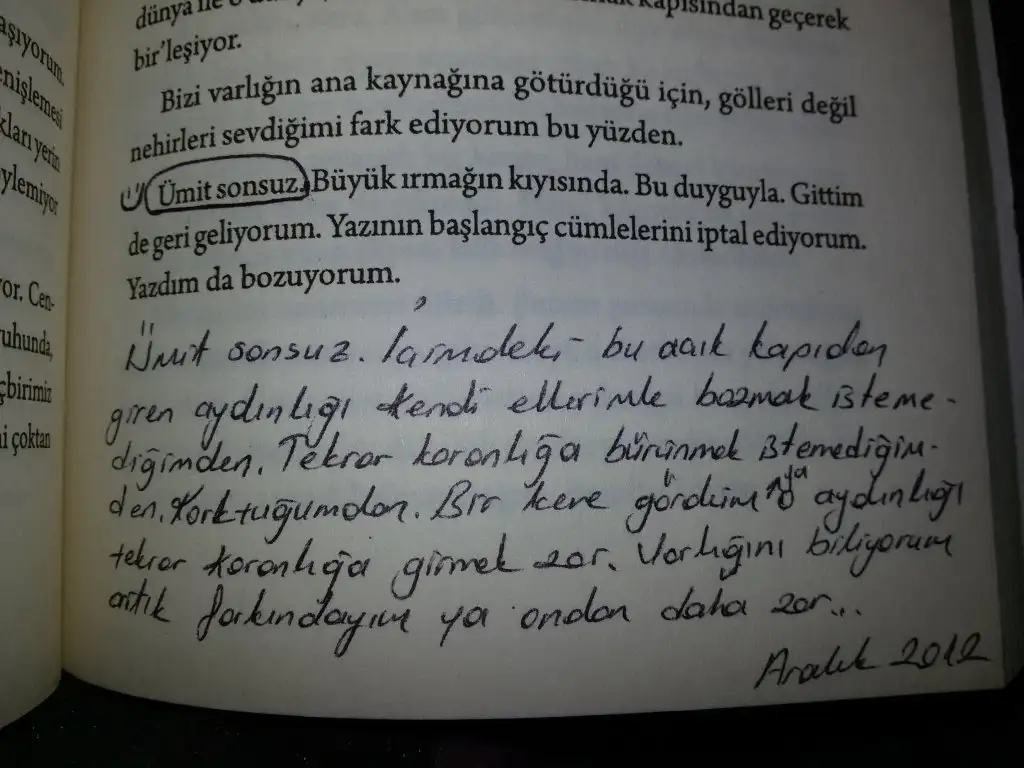 aşıyorum.
enişlemesi
kları yerin
ylemiyor
or. Cen-
uhunda,
çbirimiz
i çoktan
dünya ile
kapısından geçerek
bir'leşiyor.
Bizi varlığın ana kaynağına götürdüğü için, gölleri değil
nehirleri sevdiğimi fark ediyorum bu yüzden.
Ümit sonsuz. Büyük ırmağın kıyısında. Bu duyguyla. Gittim
de geri geliyorum. Yazının başlangıç cümlelerini iptal ediyorum.
Yazdım da bozuyorum.
Ümit sonsuz. İçimdeki bu açık kapıdan
giren aydınlığı kendi ellerimle bozmak isteme-
diğimden. Tekrar karanlığa bürünmek istemediğim-
den. Korktuğumdan. Bir kere gördüm ya o aydınlığı
tekrar karanlığa girmek zor. Varlığını biliyorum
artık farkındayım ya ondan daha zor...
Aralık 2012